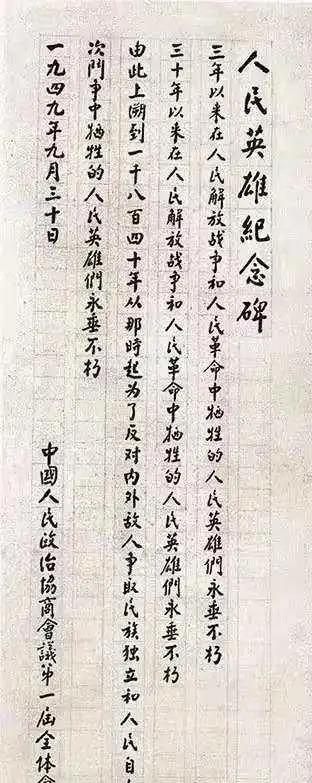 人民英雄紀念碑
三年以来在人民解放战争和人民革命中牺牲的人民英雄們永垂不朽
三十年以来在人民解放战争和人民革命中牺牲的人民英雄們永垂不朽
由此上溯到一千八百四十年从那時起为了反对内外敌人争取民族独立和人民自
次鬥争中牺牲的人民英雄們永垂不朽
一九四九年九月三十日
中國人民政治協商會議第一屆全体